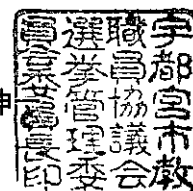 宇都宮市教
職員協議会
選挙管理委
員会委員長印